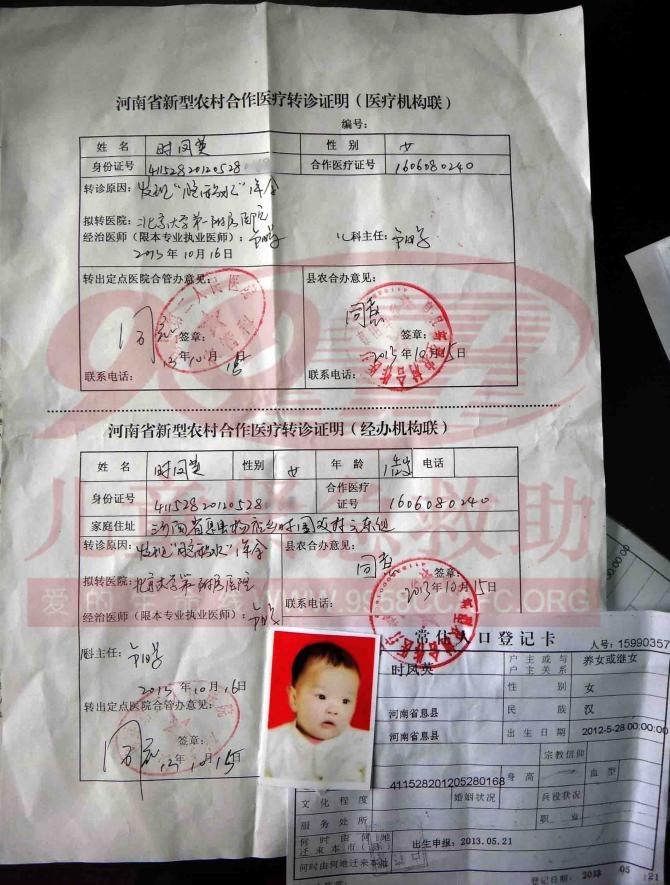 河南省新型农村合作医疗转诊证明（医疗机构联）
编号：
姓 名 时凤英 性 别 女
身份证号 41152820120528 合作医疗证号 1606080240
转诊原因：发现 1年余
拟转医院：北京大学第一附属医院
经治医师（限本专业执业医师）： 儿科主任：
2013年10月16
转出定点医院合管办意见： 县农合办意见：
同意 同意
签章： 签章：
13年10月 2013年10月15日
联系电话： 联系电话：
河南省新型农村合作医疗转诊证明（经办机构联）
姓 名 时凤英 性别 女 年 龄 电话
身份证号 41152820120528 合作医疗证号 1606080240
家庭住址 河南省息县
转诊原因：发现 1年余 县农合办意见：
同意
拟转医院：北京大学第一附属医院 签章：
2013年10月15日
经治医师（限本专业执业医师）： 联系电话：
科主任：
2013年10月16日
转出定点医院合管办意见：
同意
签章：
13年10月15日
儿童紧急救助
WWW.9958.CCAFC.ORG
常住人口登记卡
人号：15990357
时凤英 户主或与户主关系 养女或继女
性 别 女
河南省息县 民 族 汉
河南省息县 出生日期 2012-5-28 00:00:00
宗教信仰
411528201205280168 身高 血型
文化程度 婚姻状况 兵役状况
服务处所 职 业
何时由何地迁来本市（县） 出生申报：2013.05.21
何时由何地迁来本址
登记日期：2013 05 21